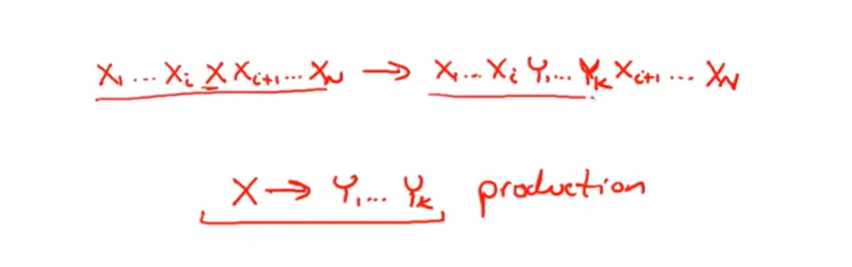 X₁ ... Xᵢ X Xᵢ₊₁ ... X_N → X₁ ... Xᵢ Y₁ ... Y_K Xᵢ₊₁ ... X_N
X → Y₁ ... Y_K production